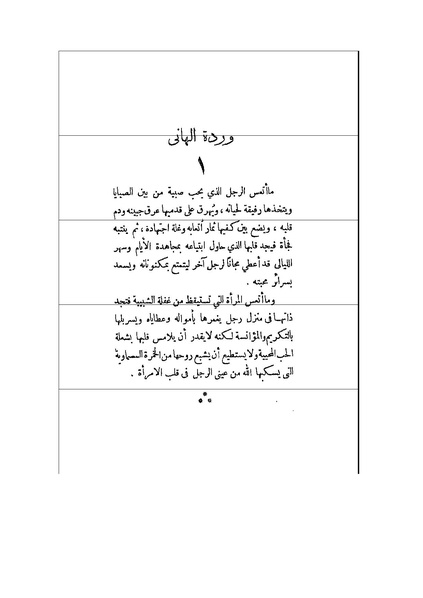 وردة الهانى
١
ماأتعس الرجل الذي يحب صبية من بين الصبايا
ويتخذها رفيقة لحياته ، ويُهرق على قدميها عرق جبينه ودم
قلبه ، ويضع بين كفيها ثمار أتعابه وغلة اجتهاده ، ثم ينتبه
فجأة فيجد قلبها الذي حاول ابتياعه بمجاهدة الأيام وسهر
الليالى قد أعطي مجاناً لرجل آخر ليتمتع بمكنوناته ويسعد
بسرائر محبته .
وماأتعس المرأة التي تستيقظ من غفلة الشبيبة فتجد
ذاتها فى منزل رجل يغمرها بأمواله وعطاياه ويسربلها
بالتكريم والمؤانسة لكنه لايقدر أن يلامس قلبها بشعلة
الحب المحيية ولايستطيع أن يشبع روحها من الخمرة السماوية
التى يسكبها الله من عينى الرجل فى قلب الامرأة .